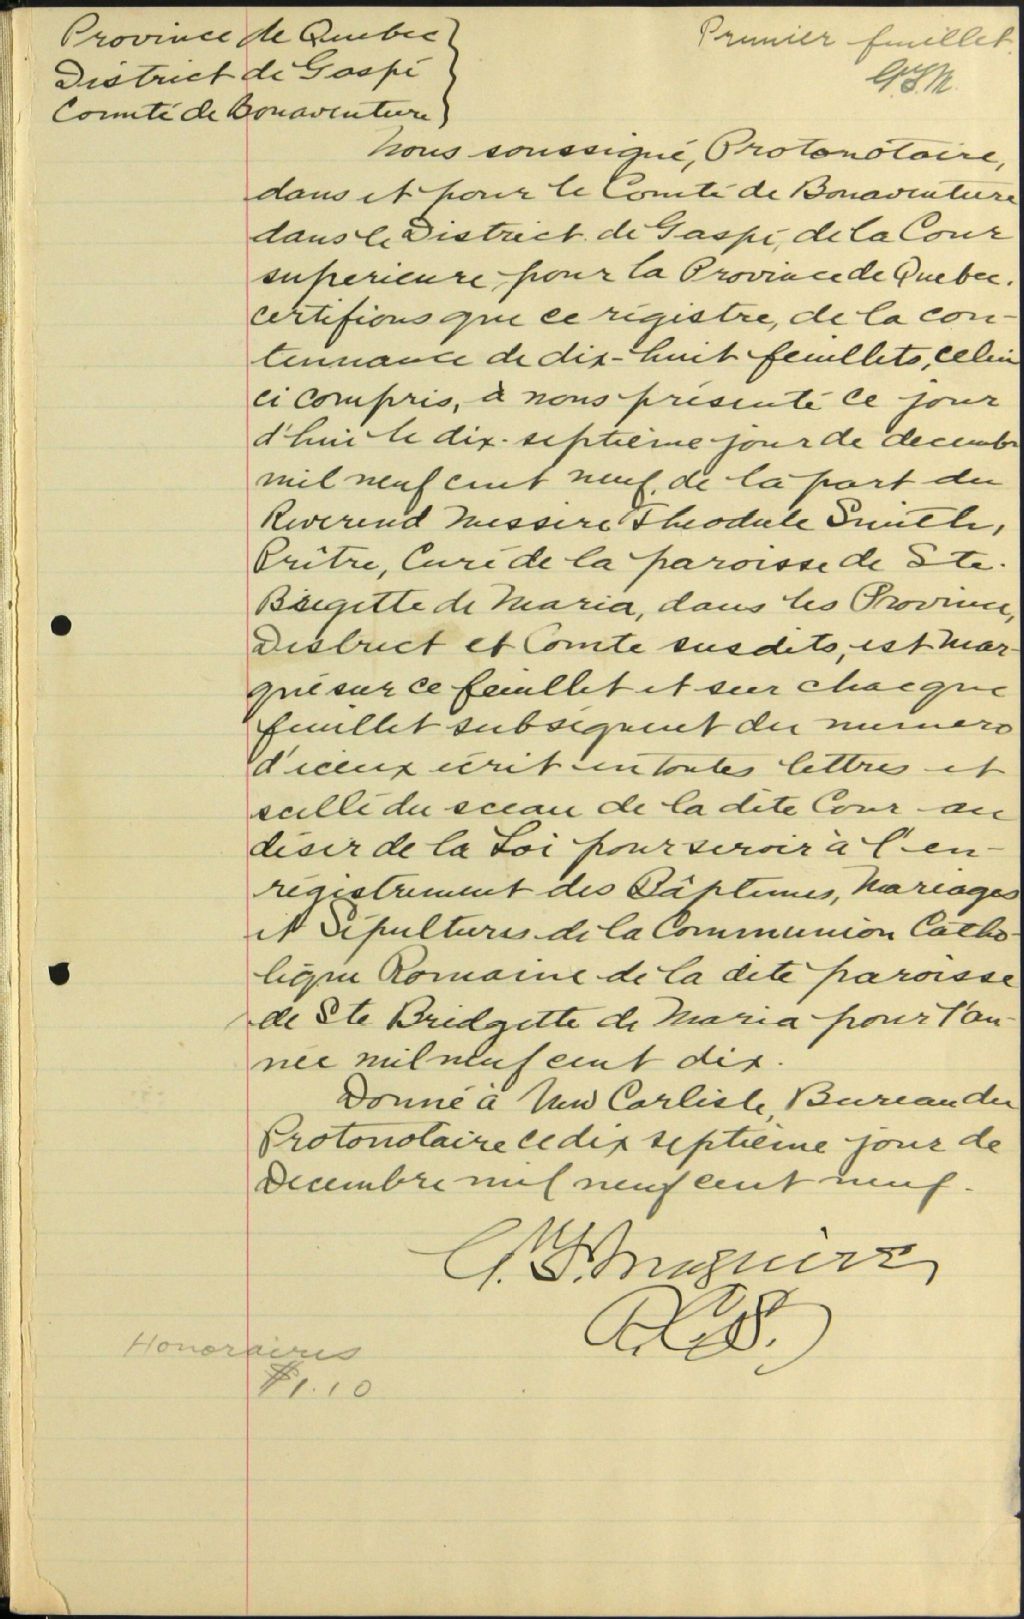 Province de Quebec
District de Gaspé
Comté de Bonaventure
Premier feuillet
G.F.M.
Nous soussigné, Protonotaire,
dans et pour le Comté de Bonaventure
dans le District de Gaspé, de la Cour
superieure pour la Province de Quebec.
certifions que ce régistre, de la con-
tennance de dix-huit feuillets, celui
ci compris, à nous présenté ce jour
d'hui le dix-septième jour de decembre
mil neuf cent neuf, de la part du
Reverend Messire Theodule Smith,
Prêtre, Curé de la paroisse de Ste.
Brigette de Maria, dans les Province,
District et Comté susdits, est mar-
qué sur ce feuillet et sur chacque
feuillet subséquent du numero
d'iceux écrit en toutes lettres et
scellé du sceau de la dite Cour au
désir de la Loi pour servir à l'en-
régistrement des Bâptemes, Mariages
et Sépultures de la Communion Catho-
lique Romaine de la dite paroisse
de Ste Bridgette de Maria pour l'an-
née mil neuf cent dix.
Donné à New Carlisle, Bureau du
Protonotaire ce dix septième jour de
Decembre mil neuf cent neuf.
G. F. Maguire
P.C.S.
Honoraires
$1.10